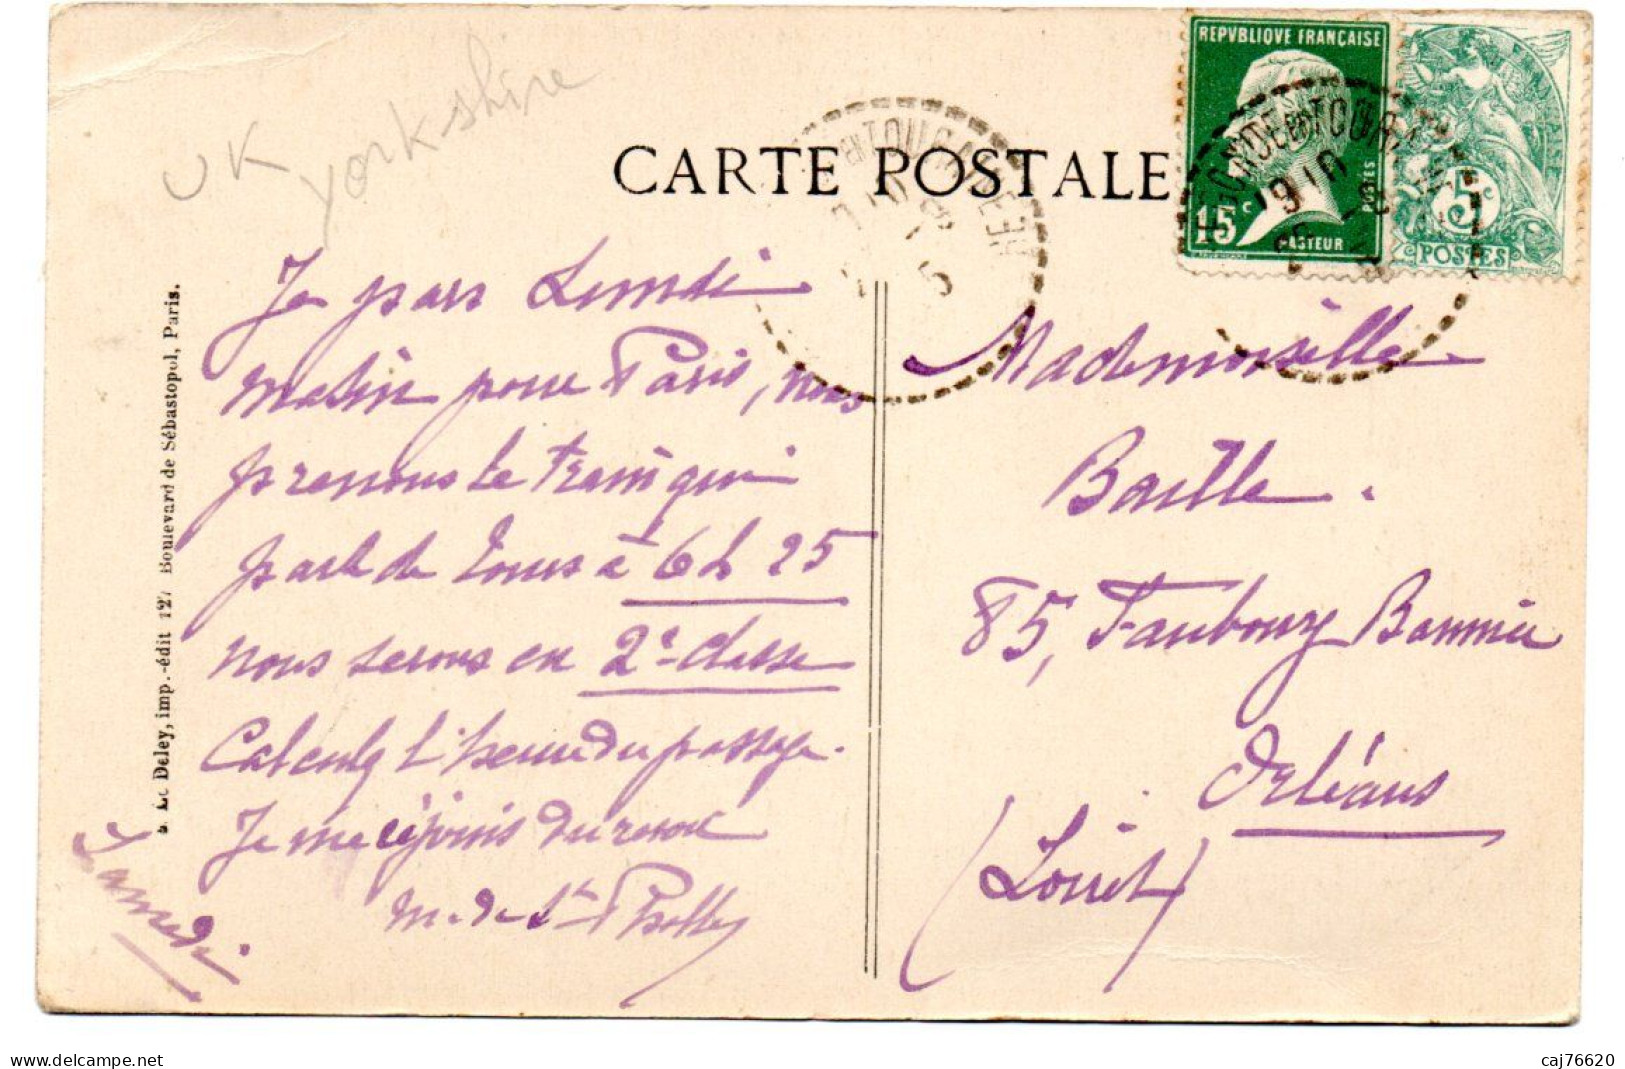 REPVBLIQUE FRANÇAISE
15c
POSTES
PASTEUR
5c
POSTES
UK
Yorkshire
CARTE POSTALE
Je pars Lundi
matin pour Paris, nous
prenons le train qui
part de Tours à 6h 25
nous serons en 2e classe
Calculez l'heure du passage.
Je me réjouis du revoir
M. de
Samedi
Mademoiselle
Baille.
85, Faubourg Bannier
Orléans
(Loiret)
Le Deley, imp.-édit 127 Boulevard de Sébastopol, Paris.
caj76620
delcampe.net